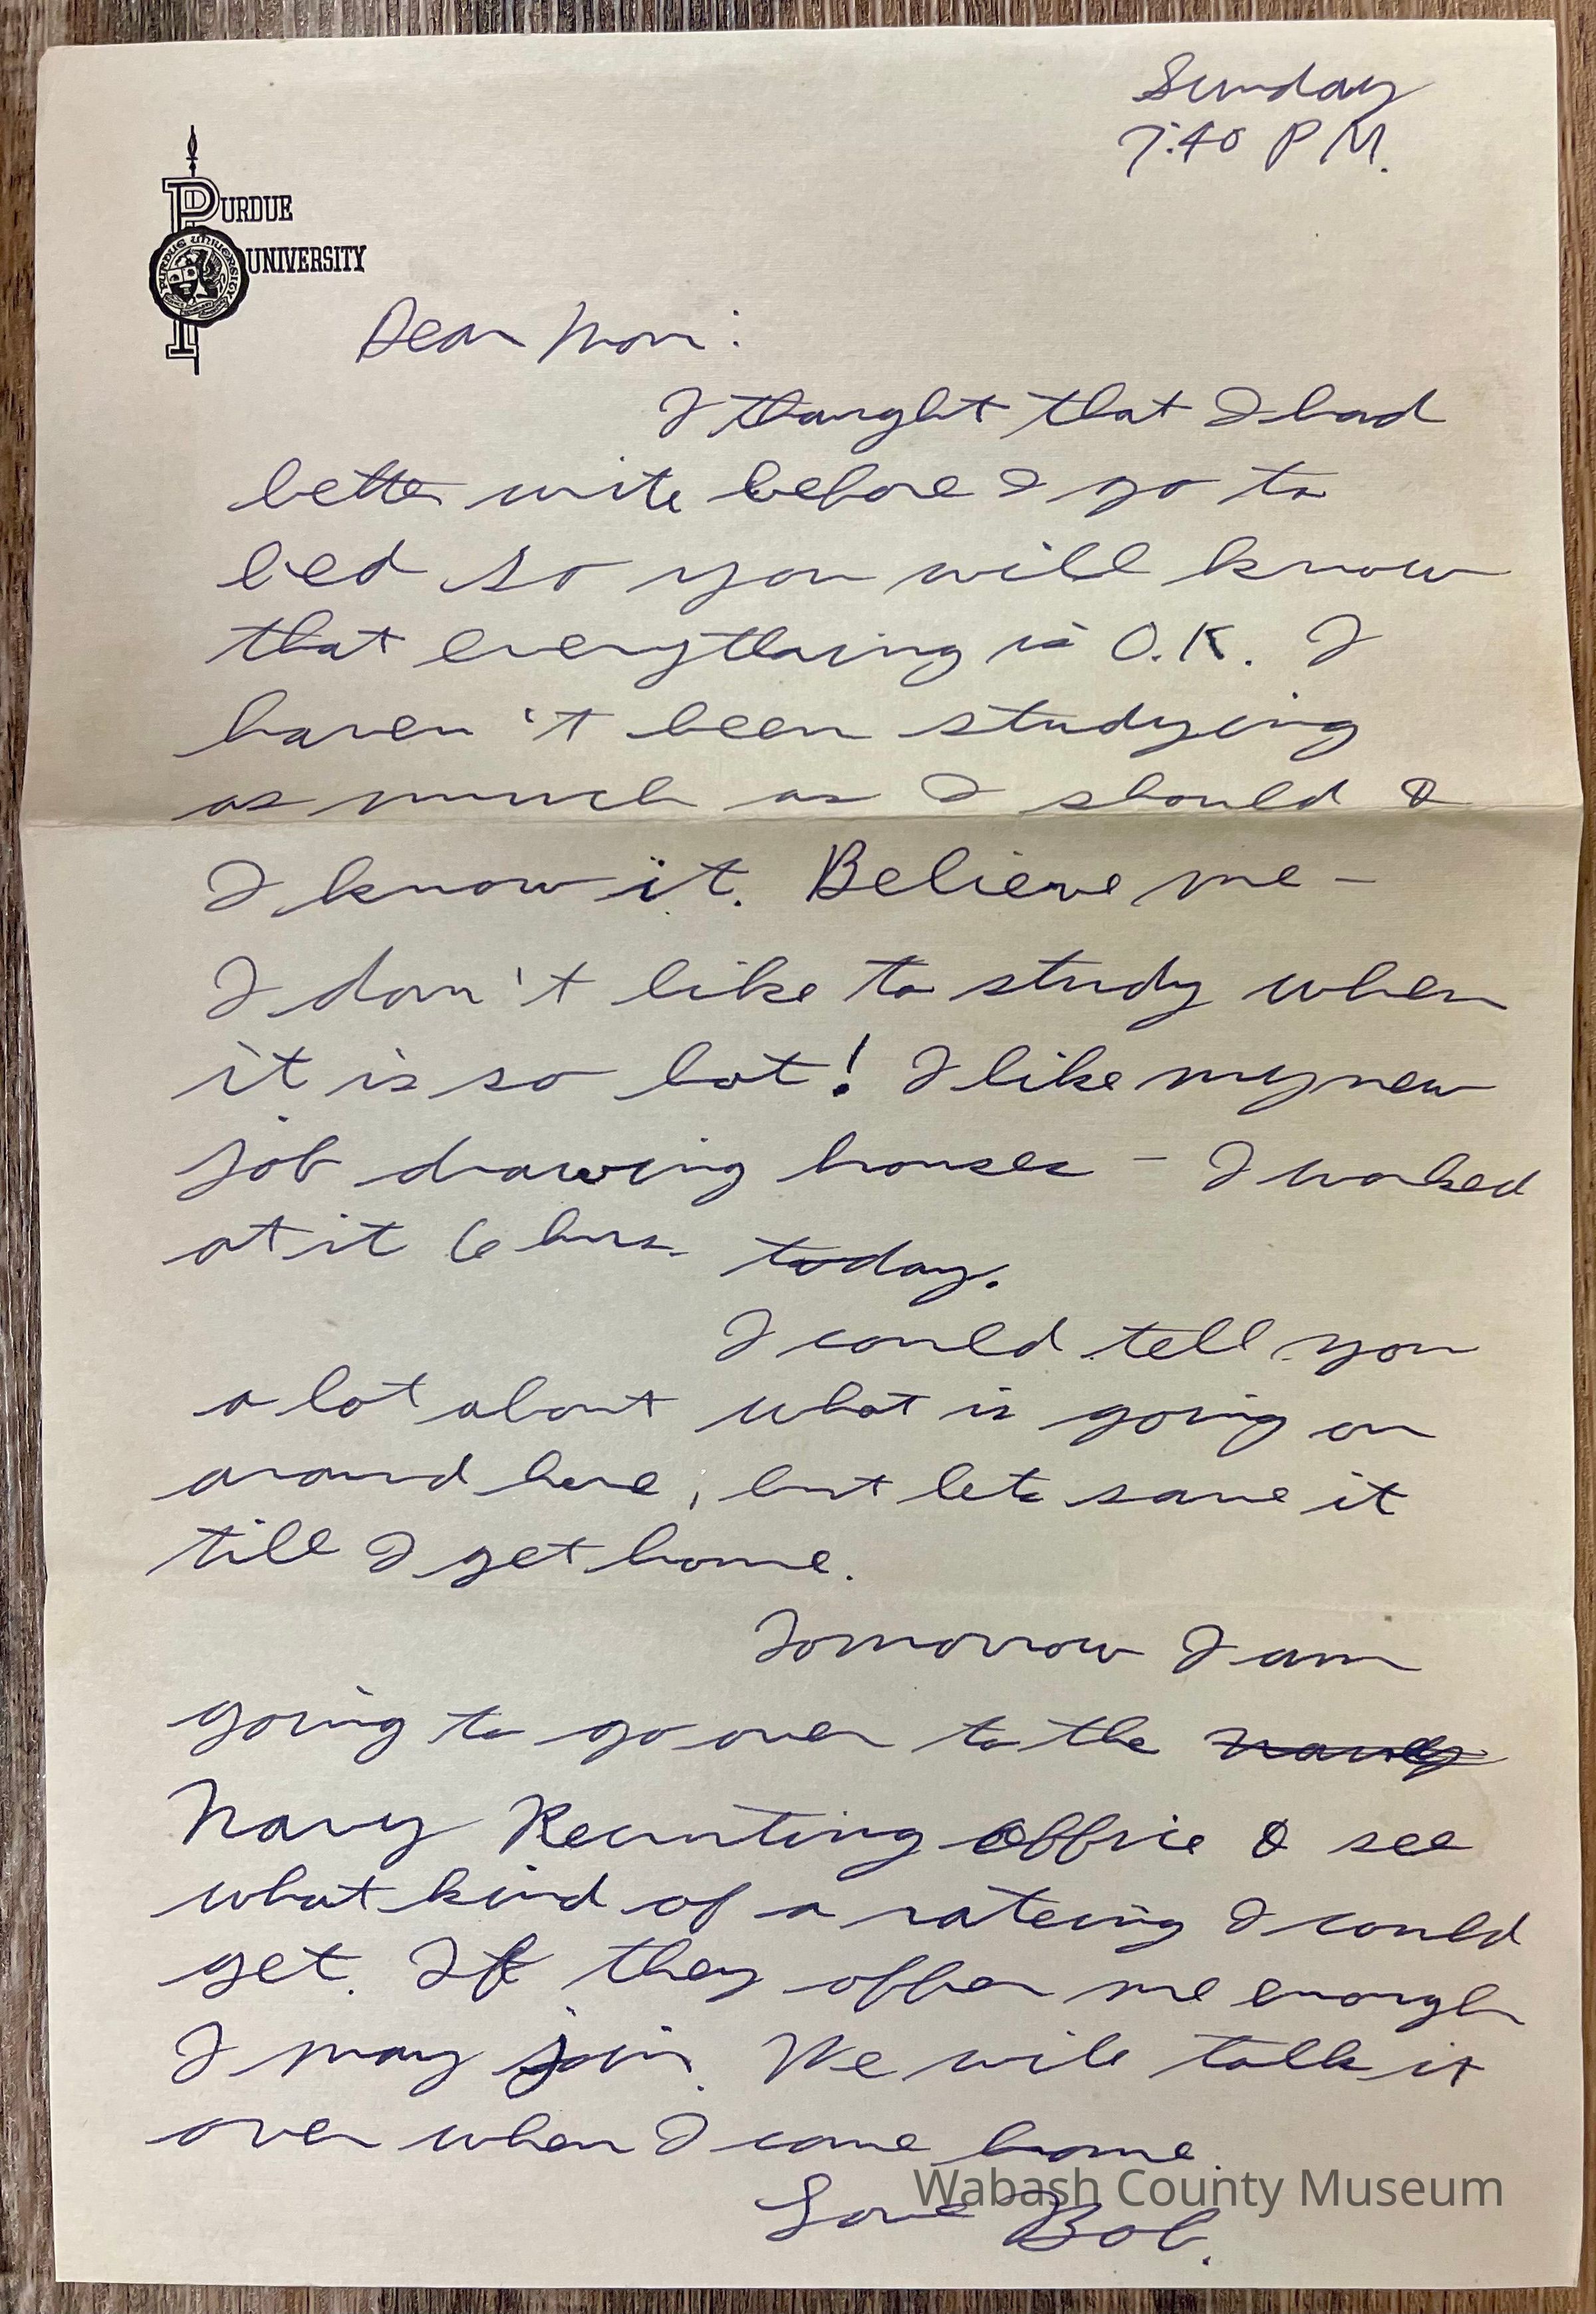 Sunday
7:40 P M.
PURDUE
UNIVERSITY
PURDUE UNIVERSITY
Dear Mom:
I thought that I had
better write before I go to
bed so you will know
that everything is O.K. I
haven't been studying
as much as I should &
I know it. Believe me -
I don't like to study when
it is so hot! I like my new
job drawing houses - I worked
at it 6 hrs. today.
I could tell you
a lot about what is going on
around here, but lets save it
till I get home.
Tomorrow I am
going to go over to the navy
Navy Recruting Office & see
what kind of a rateing I could
get. If they offer me enough
I may join. We will talk it
over when I come home.
Love Bob.
Wabash County Museum